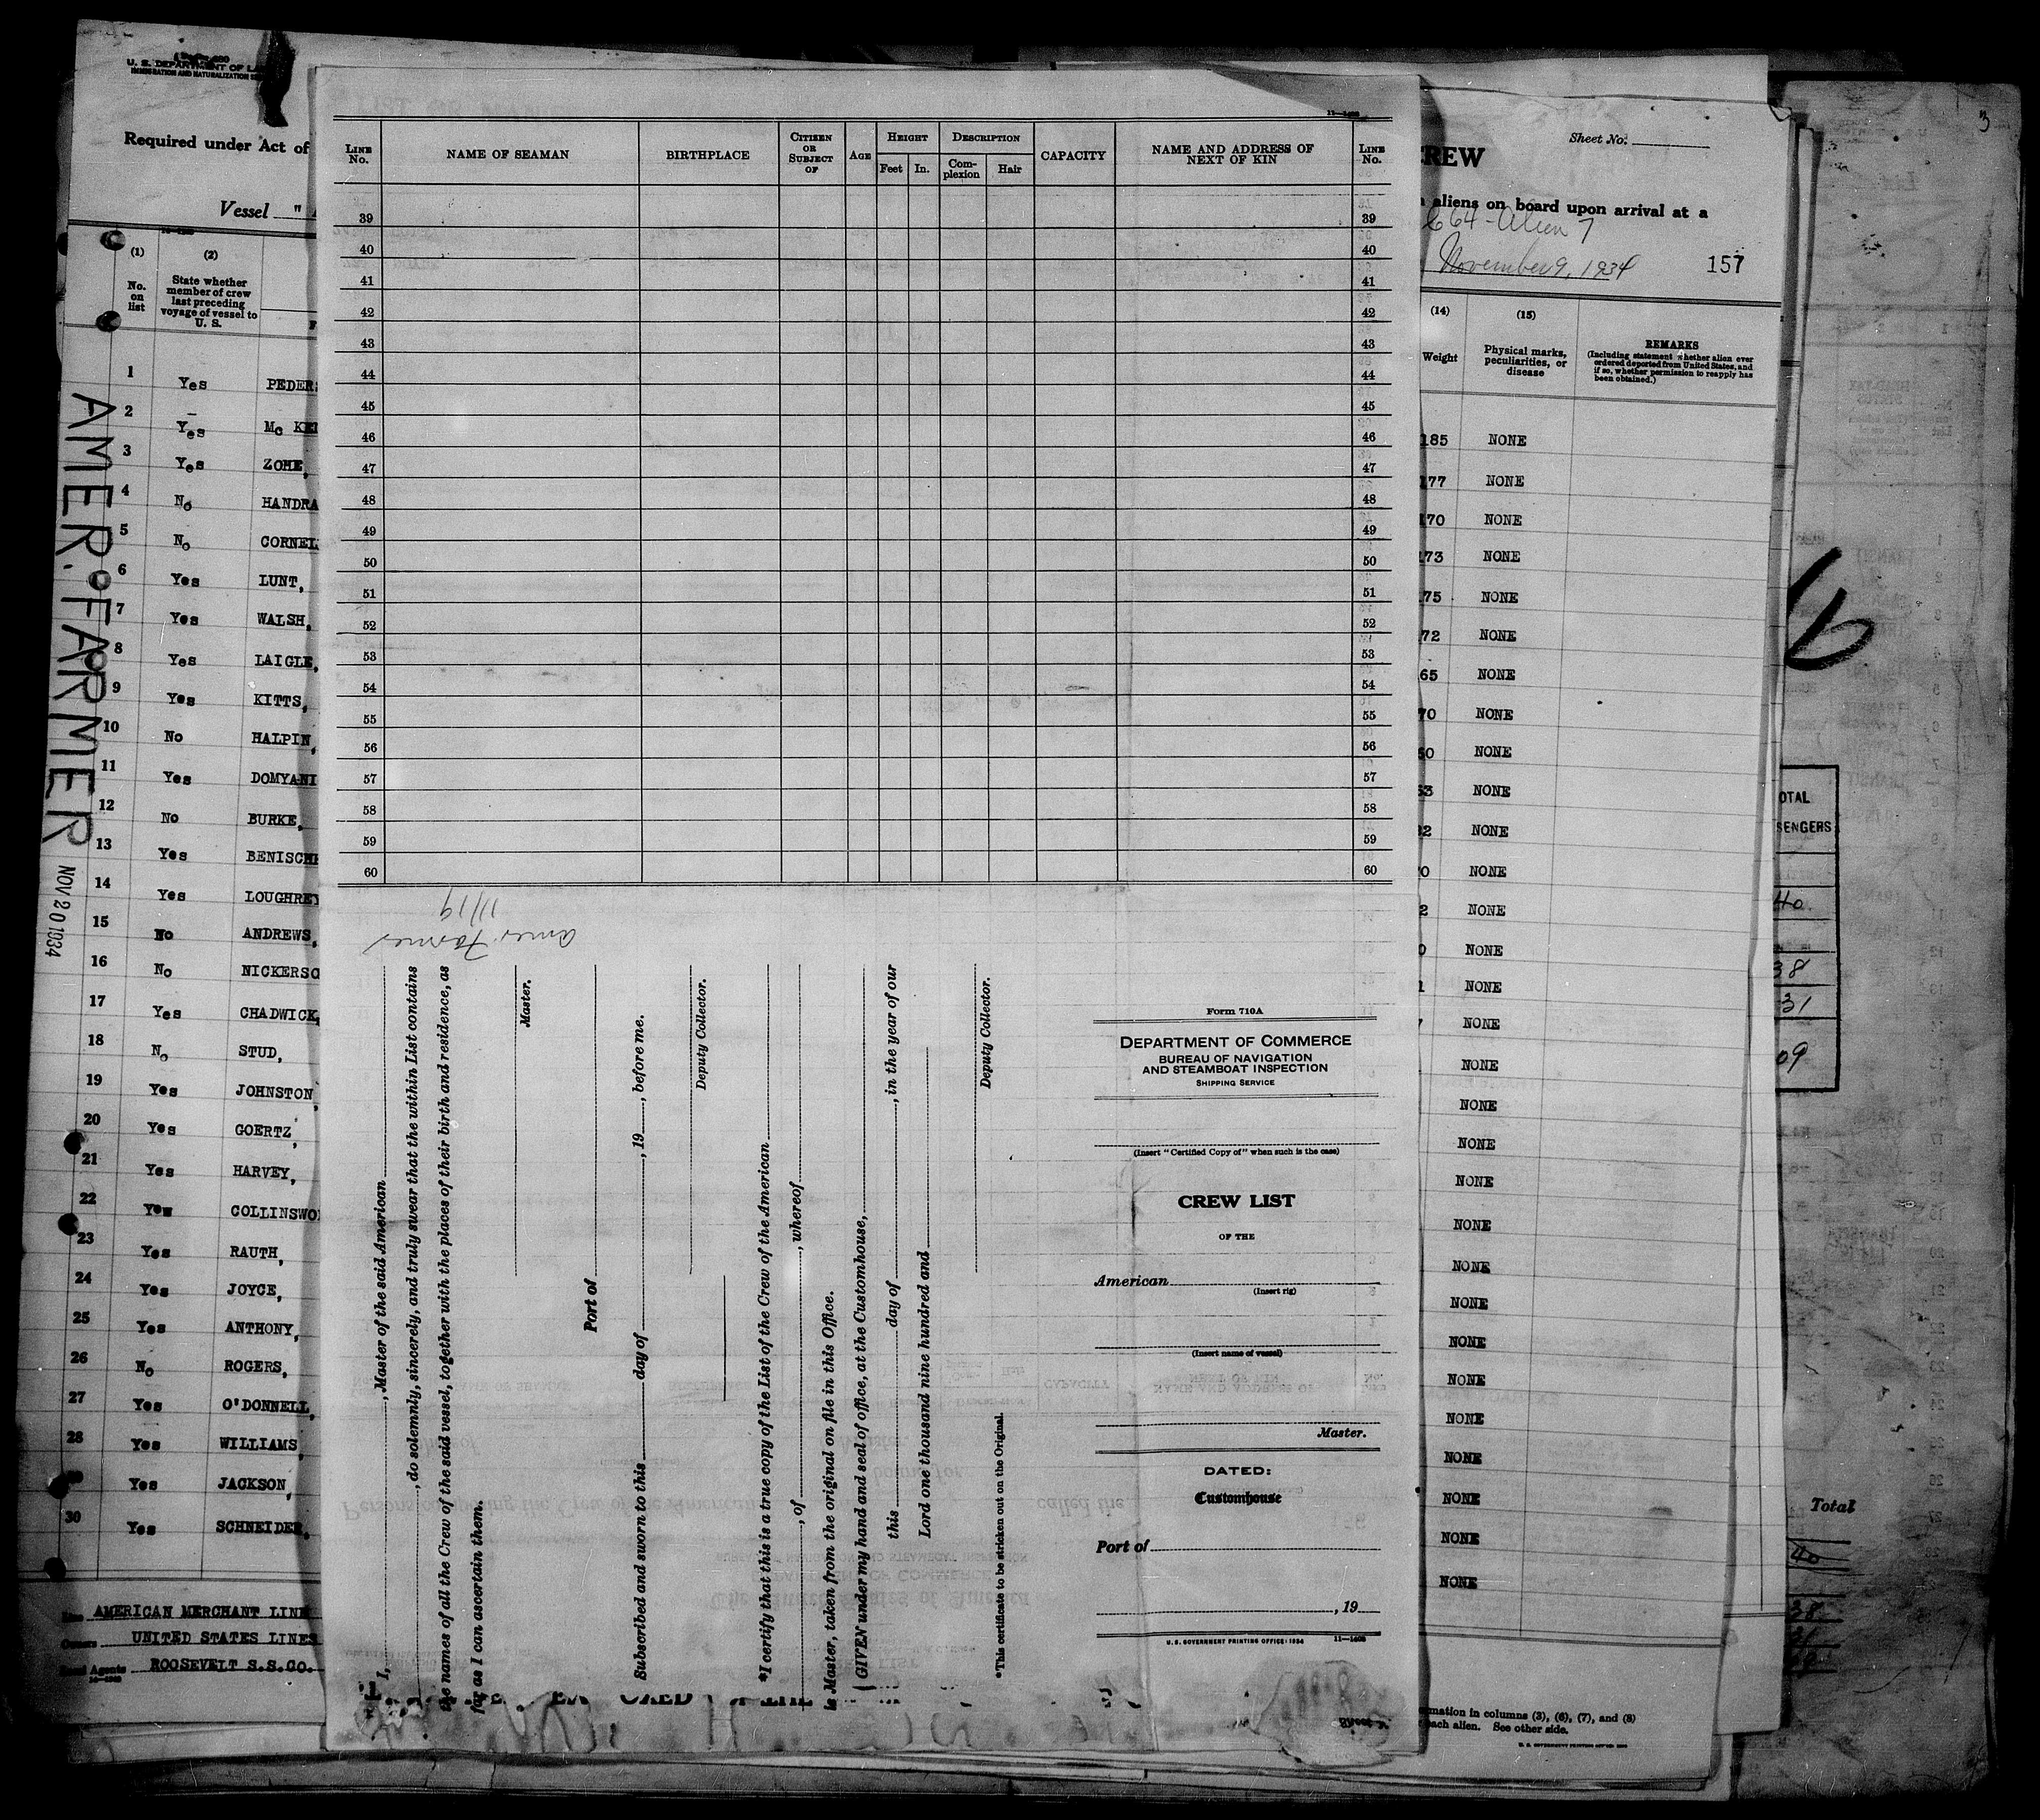 U. S. DEPARTMENT OF LA
IMMIGRATION AND NATURALIZATION SE
Required under Act of
Vessel "
(1)
No. on list
(2)
State whether member of crew last preceding voyage of vessel to U. S.
1 Yes PEDERS
2 Yes Mc KE
3 Yes ZOHE,
4 No HANDRA
5 No CORNEL
6 Yes LUNT,
7 Yes WALSH,
8 Yes LAIGLE,
9 Yes KITTS,
10 No HALPIN,
11 Yes DOMYANI
12 No BURKE,
13 Yes BENISCH
14 Yes LOUGHREY
15 No ANDREWS,
16 No NICKERSO
17 Yes CHADWICK,
18 No STUD,
19 Yes JOHNSTON,
20 Yes GOERTZ,
21 Yes HARVEY,
22 Yes COLLINSWO
23 Yes RAUTH,
24 Yes JOYCE,
25 Yes ANTHONY,
26 No ROGERS,
27 Yes O'DONNELL,
28 Yes WILLIAMS,
Yes JACKSON,
30 Yes SCHNEIDER,
AMERICAN MERCHANT LINE
Owners UNITED STATES LINES
Local Agents ROOSEVELT S.S.CO.
AMER. FARMER
NOV 20 1934
11—1408
LINE No.
NAME OF SEAMAN
BIRTHPLACE
CITIZEN OR SUBJECT OF
AGE
HEIGHT
Feet In.
DESCRIPTION
Complexion Hair
CAPACITY
NAME AND ADDRESS OF NEXT OF KIN
LINE No.
39 39
40 40
41 41
42 42
43 43
44 44
45 45
46 46
47 47
48 48
49 49
50 50
51 51
52 52
53 53
54 54
55 55
56 56
57 57
58 58
59 59
60 60
11/19
Amer Farmer
I, , Master of the said American
, do solemnly, sincerely, and truly swear that the within List contains
the names of all the Crew of the said vessel, together with the places of their birth and residence, as
far as I can ascertain them.
Master.
Port of
Subscribed and sworn to this day of , 19 , before me.
Deputy Collector.
*I certify that this is a true copy of the List of the Crew of the American
, of , whereof
is Master, taken from the original on file in this Office.
GIVEN under my hand and seal of office, at the Customhouse,
this day of , in the year of our
Lord one thousand nine hundred and
Deputy Collector.
*This certificate to be stricken out on the Original.
Form 710A
DEPARTMENT OF COMMERCE
BUREAU OF NAVIGATION
AND STEAMBOAT INSPECTION
SHIPPING SERVICE
(Insert "Certified Copy of" when such is the case)
CREW LIST
OF THE
American
(Insert rig)
(Insert name of vessel)
Master.
DATED:
Customhouse
Port of
, 19
U. S. GOVERNMENT PRINTING OFFICE: 1934 11—1408
Sheet No.
CREW
aliens on board upon arrival at a
664 - Alien 7
November 9, 1934 157
(14)
Weight
(15)
Physical marks, peculiarities, or disease
REMARKS
(Including statement whether alien ever ordered deported from United States, and if so, whether permission to reapply has been obtained.)
185 NONE
177 NONE
170 NONE
173 NONE
75 NONE
72 NONE
65 NONE
70 NONE
60 NONE
53 NONE
32 NONE
0 NONE
2 NONE
0 NONE
1 NONE
7 NONE
NONE
NONE
NONE
NONE
NONE
NONE
NONE
NONE
NONE
NONE
NONE
NONE
NONE
NONE
rmation in columns (3), (6), (7), and (8)
each alien. See other side.
3
OTAL
SENGERS
40
38
31
09
Total
40
38